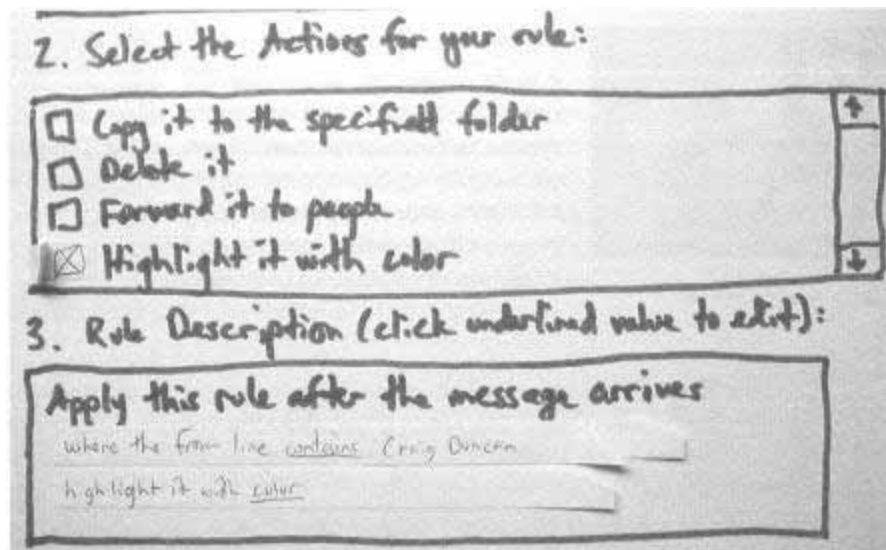 2. Select the Actions for your rule:
Copy it to the specified folder
Delete it
Forward it to people
Highlight it with color
3. Rule Description (click underlined value to edit):
Apply this rule after the message arrives
where the from line contains Craig Duncan
highlight it with color